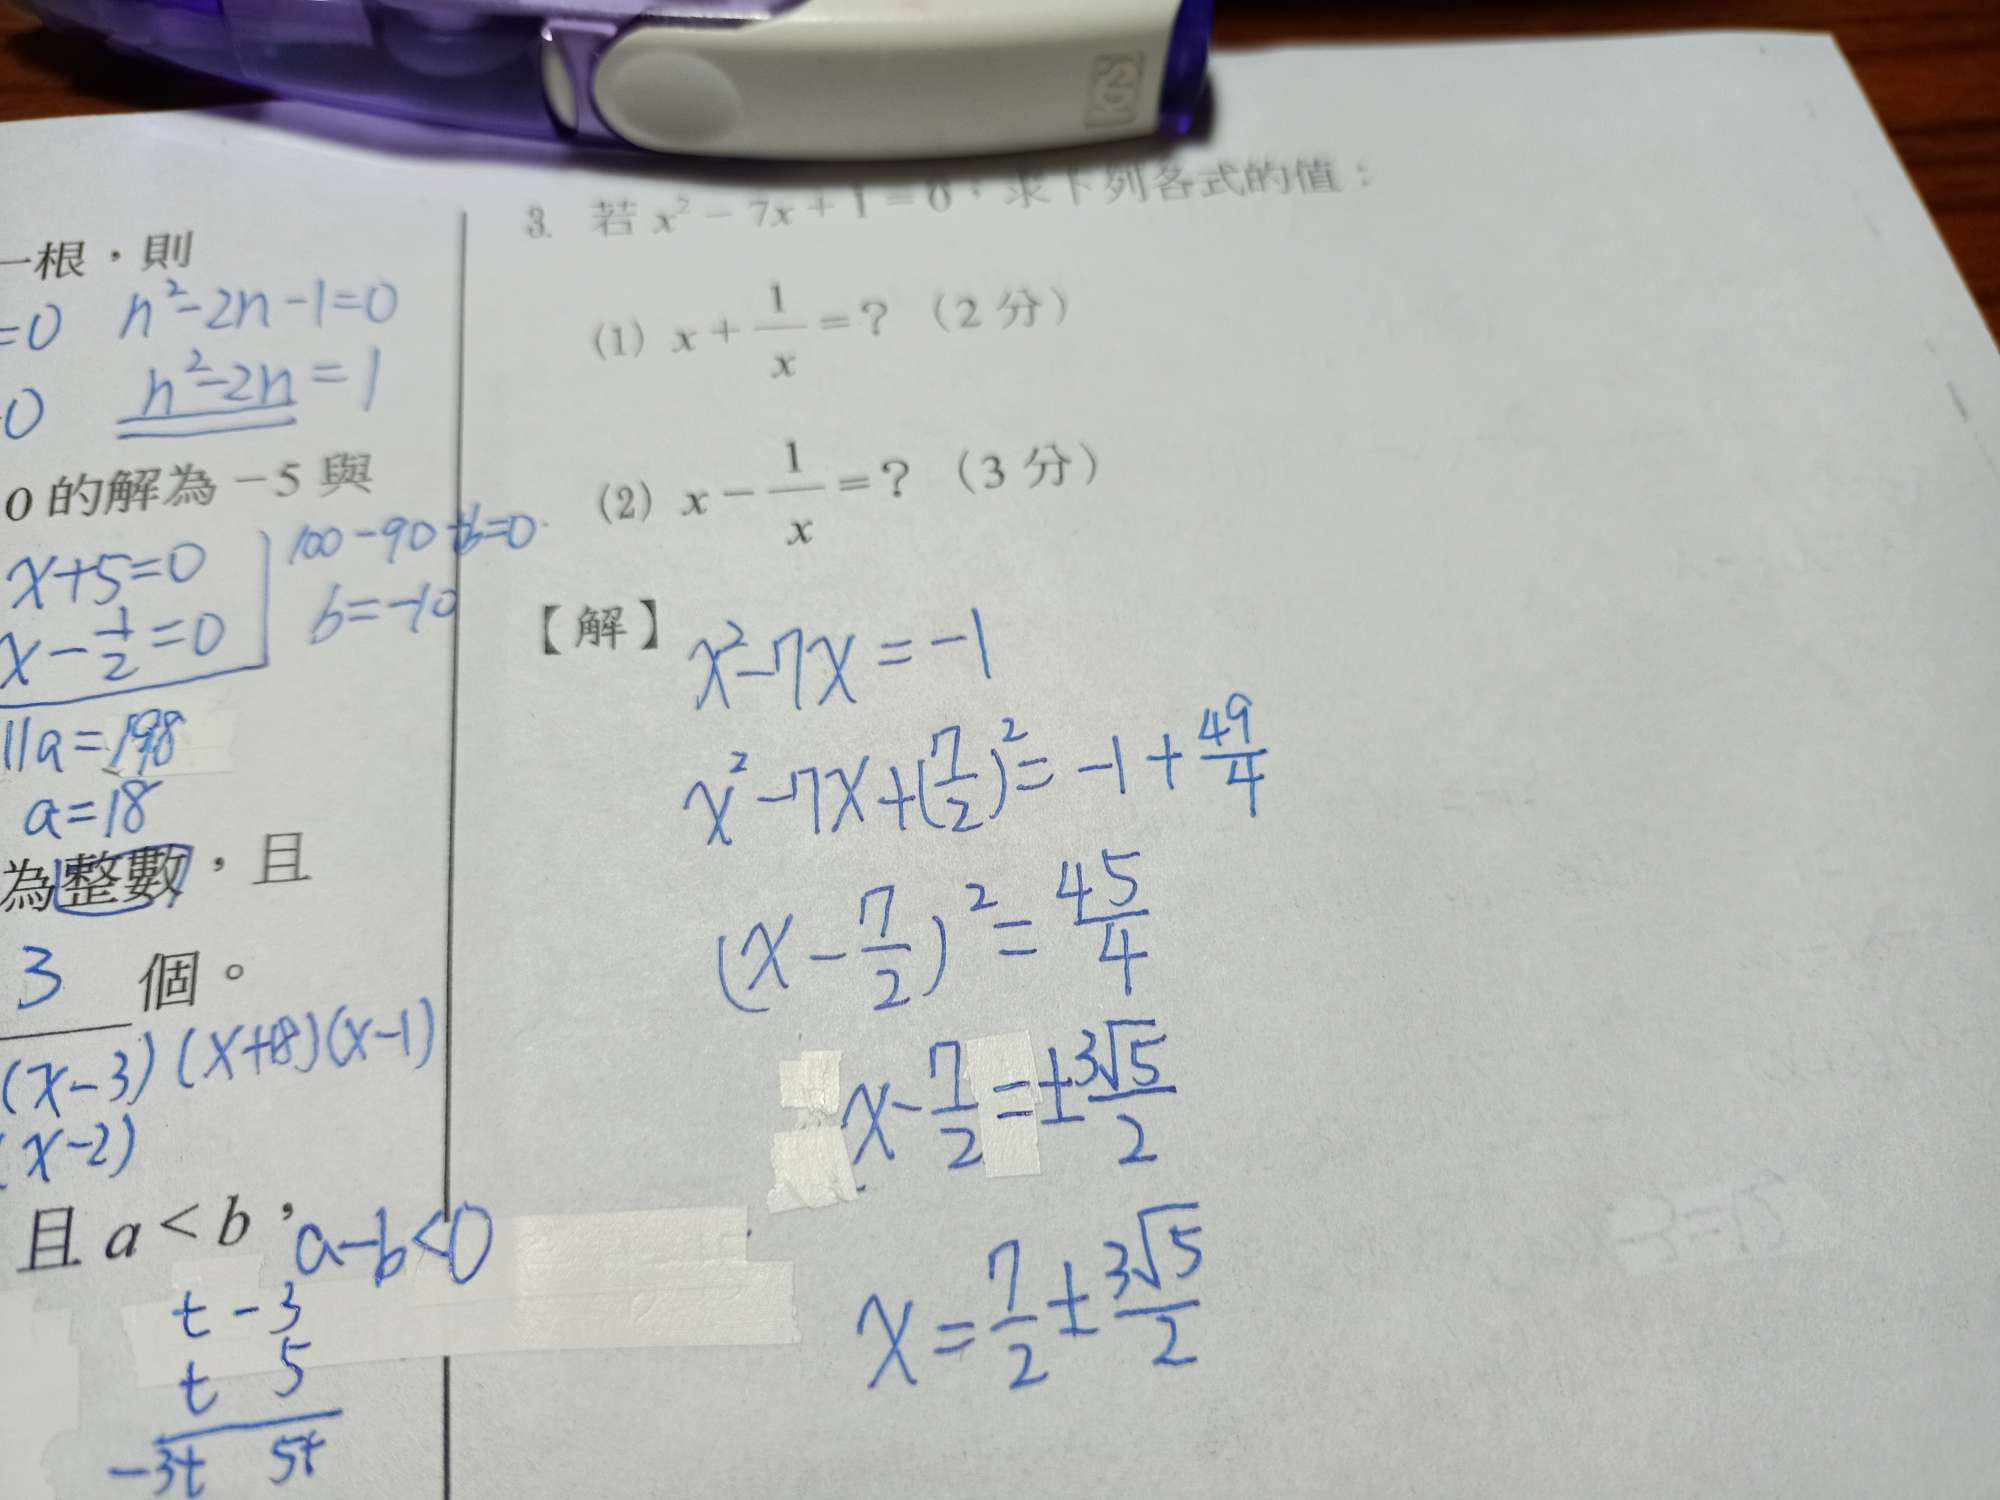 一根，則
=0 n²-2n-1=0
0 n²-2n=1
0的解為-5與
x+5=0 100-90+b=0
x-1/2=0 b=-10
11a=198
a=18
為整數，且
3 個。
(x-3)(x+8)(x-1)
(x-2)
且a<b，a-b<0
t -3
t 5
-3t 5t
3. 若x²-7x+1=0，求下列各式的值：
(1) x+1/x=?（2分）
(2) x-1/x=?（3分）
【解】x²-7x=-1
x²-7x+(7/2)²=-1+49/4
(x-7/2)²=45/4
x-7/2=±3√5/2
x=7/2±3√5/2